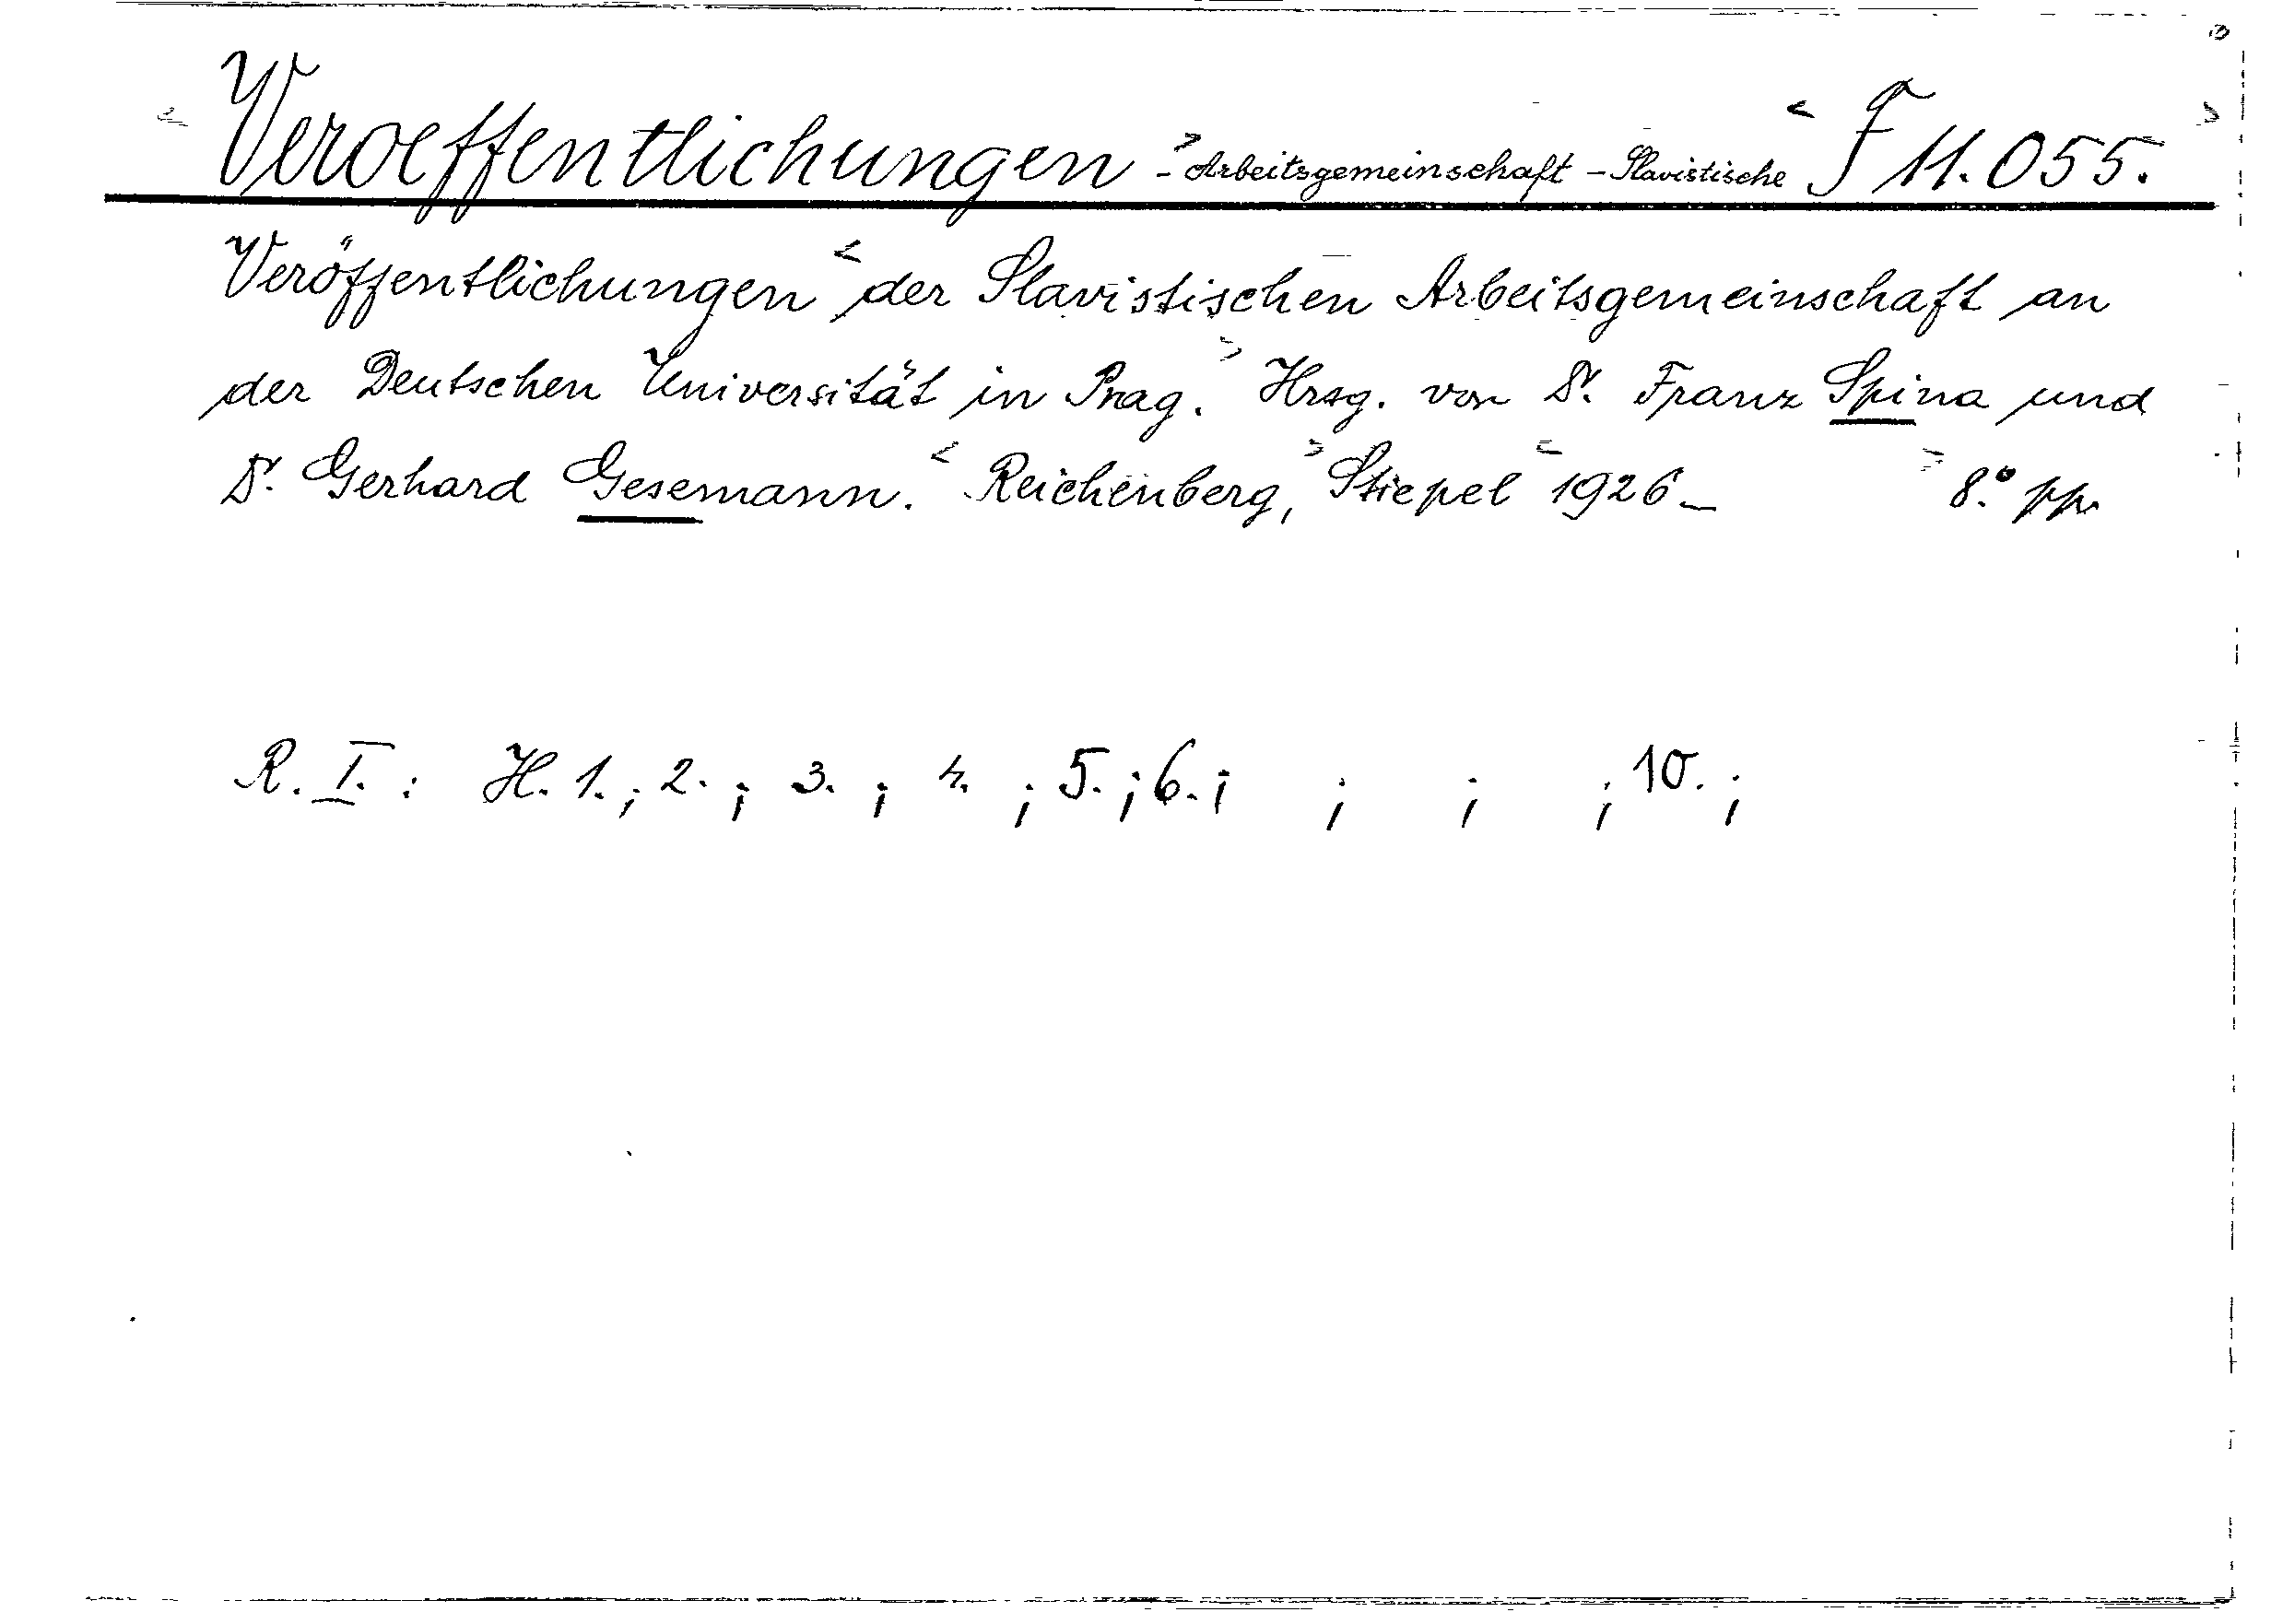 Veroeffentlichungen - Arbeitsgemeinschaft - Slavistische F 11.055.
Veröffentlichungen der Slavistischen Arbeitsgemeinschaft an
der Deutschen Universität in Prag. Hrsg. von Dr. Franz Spina und
Dr. Gerhard Gesemann. Reichenberg, Stiepel 1926– 8.° pp.
R. I. : H. 1. ; 2. ; 3. ; 4. ; 5. ; 6. ; ; ; ; 10. ;